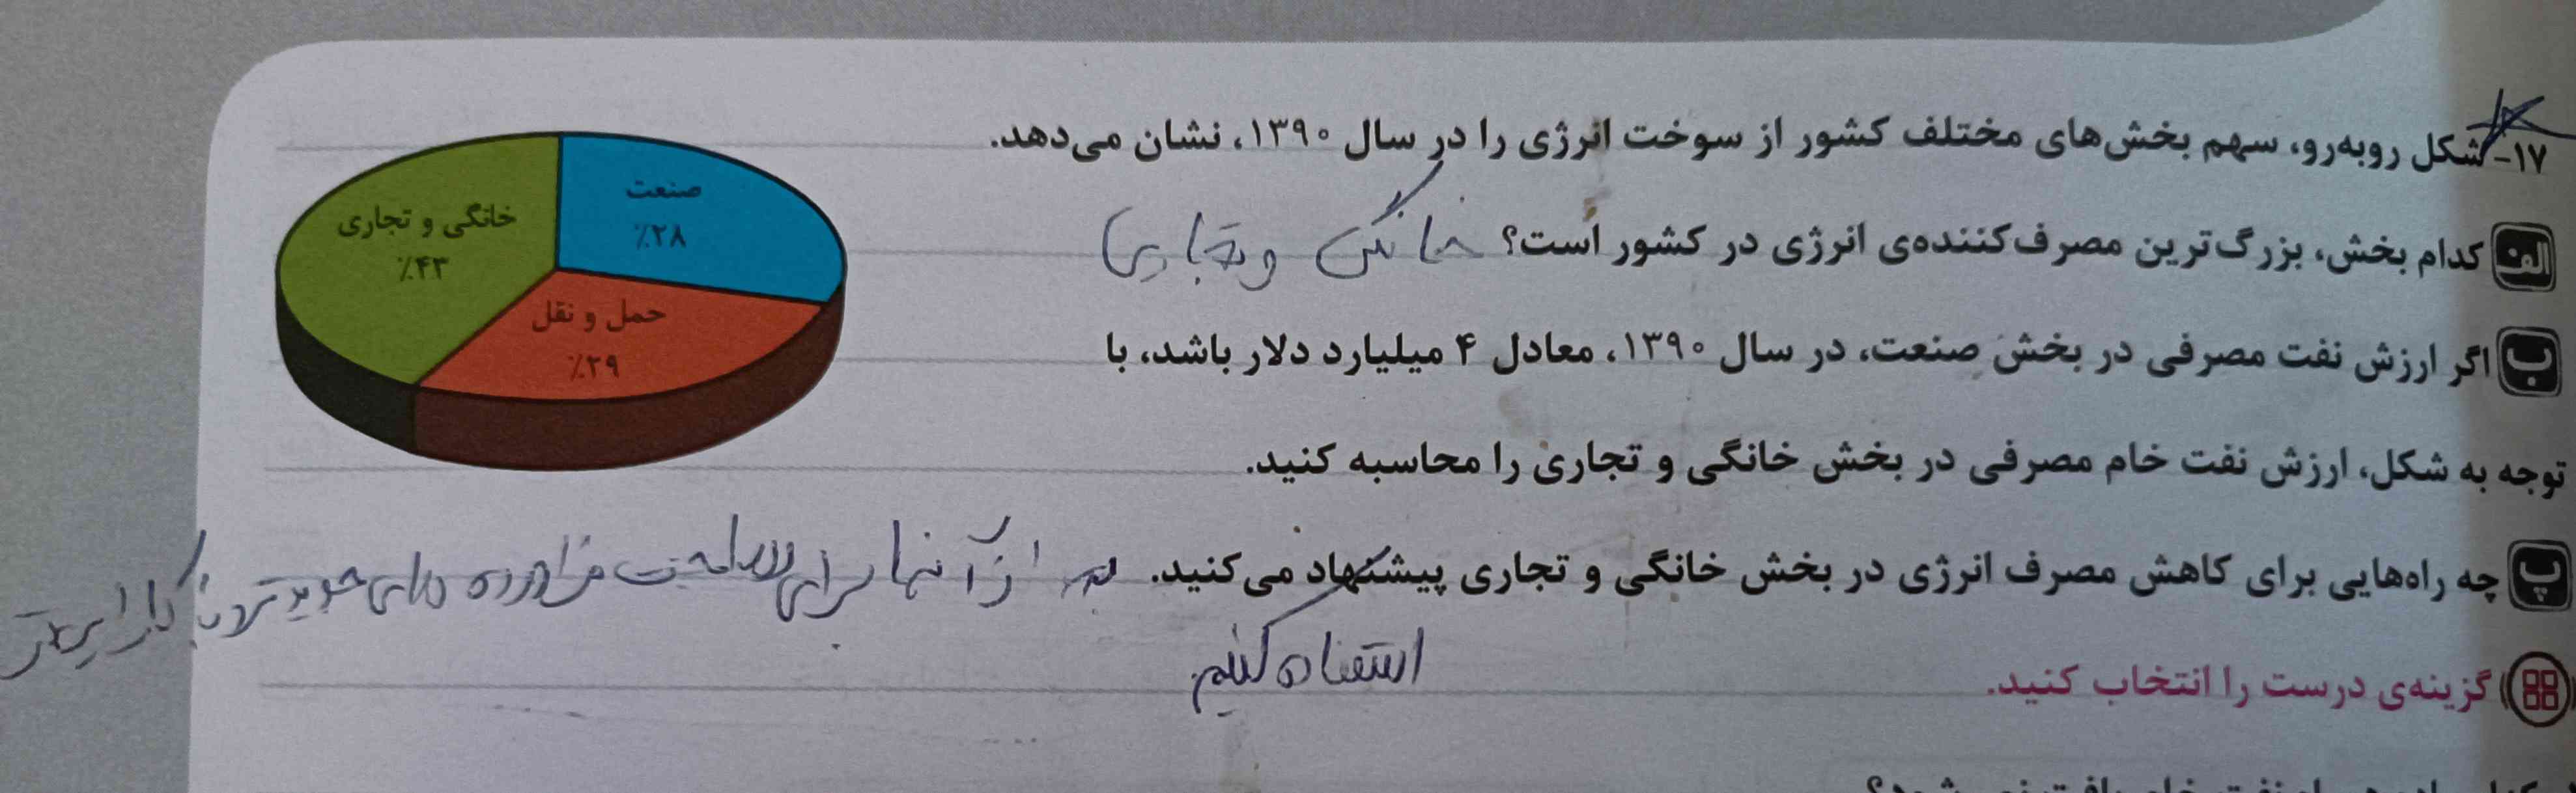 ۱۷- شکل روبه‌رو، سهم بخش‌های مختلف کشور از سوخت انرژی را در سال ۱۳۹۰، نشان می‌دهد.
صنعت
٪۲۸
خانگی و تجاری
٪۴۳
حمل و نقل
٪۲۹
الف کدام بخش، بزرگ‌ترین مصرف‌کننده‌ی انرژی در کشور است؟ خانگی و تجاری
ب اگر ارزش نفت مصرفی در بخش صنعت، در سال ۱۳۹۰، معادل ۴ میلیارد دلار باشد، با
توجه به شکل، ارزش نفت خام مصرفی در بخش خانگی و تجاری را محاسبه کنید.
پ چه راه‌هایی برای کاهش مصرف انرژی در بخش خانگی و تجاری پیشنهاد می‌کنید. از آنها برای ساخت فراورده های جدیدتر
استفاده کنیم
گزینه‌ی درست را انتخاب کنید.